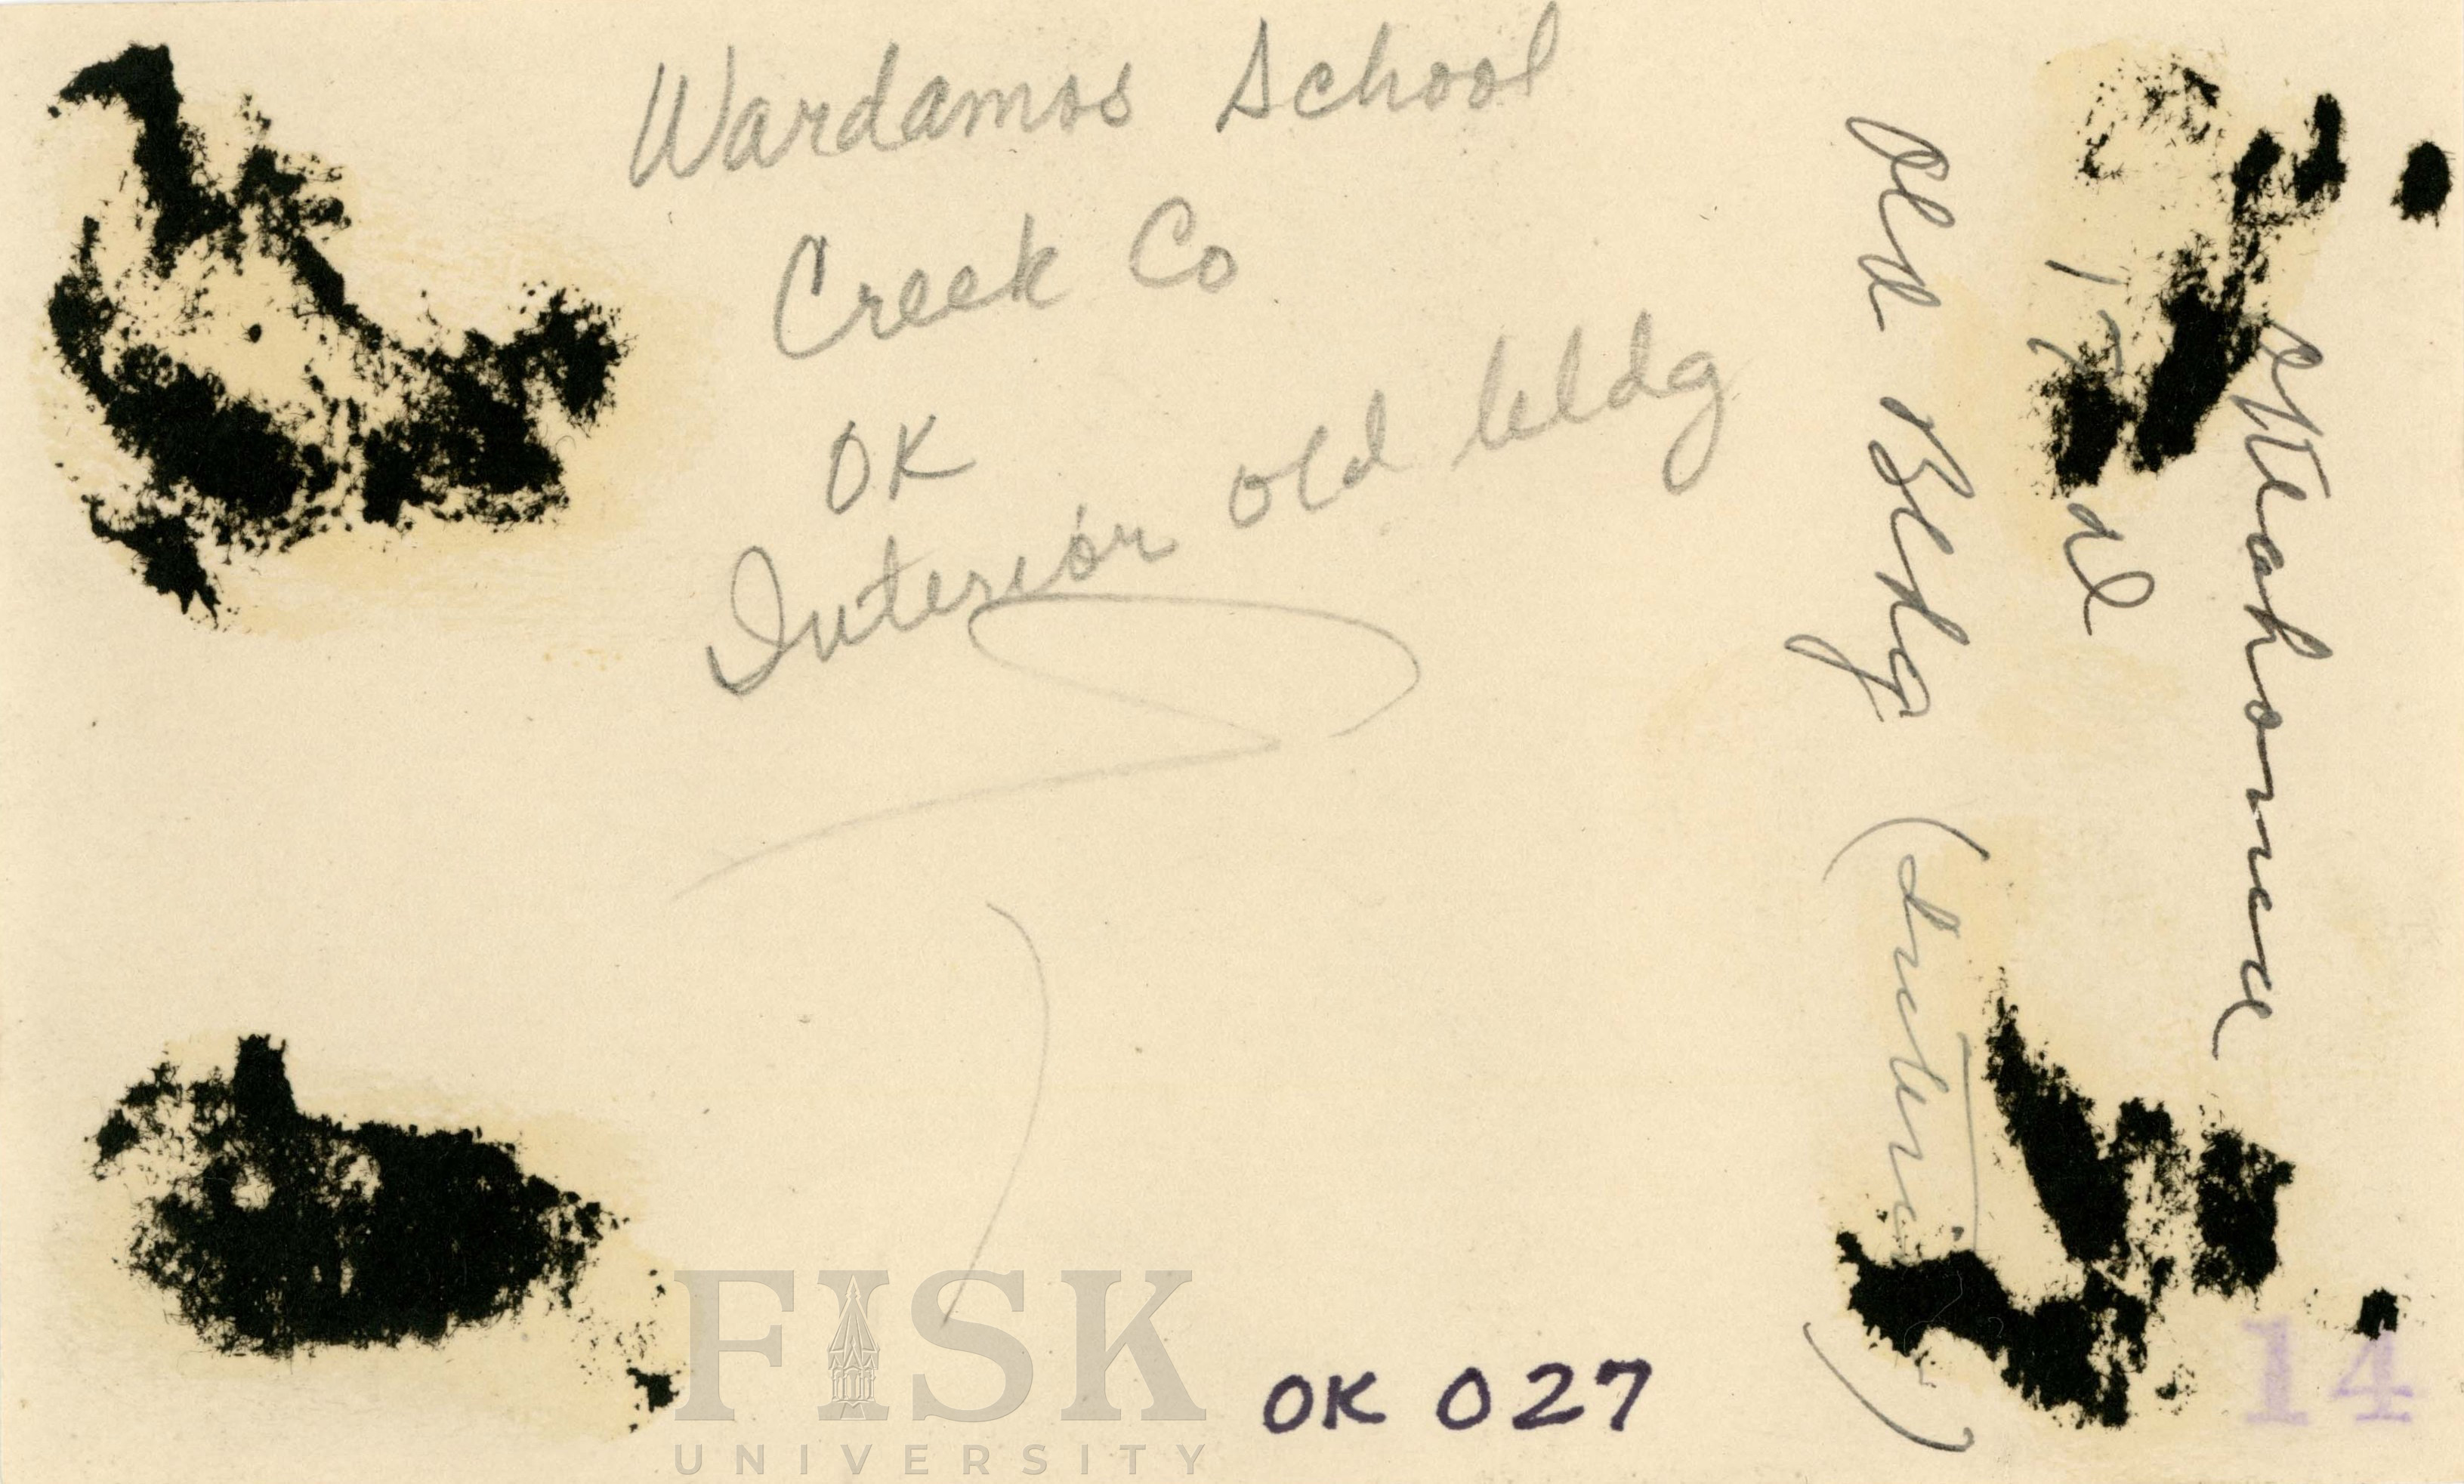 Wardamos School
Creek Co
OK
Interior old bldg
Okeahomua
Old Bldg (Interior)
OK 027
14
FISK
UNIVERSITY